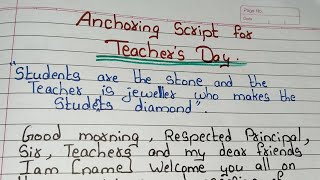 Page No.
Anchoring Script for
Teacher's Day.
"Students are the stone and the
Teacher is jeweller who makes the
Students diamond".
Good morning, Respected Principal,
Sir, Teachers and my dear friends
I am [name] welcome you all on